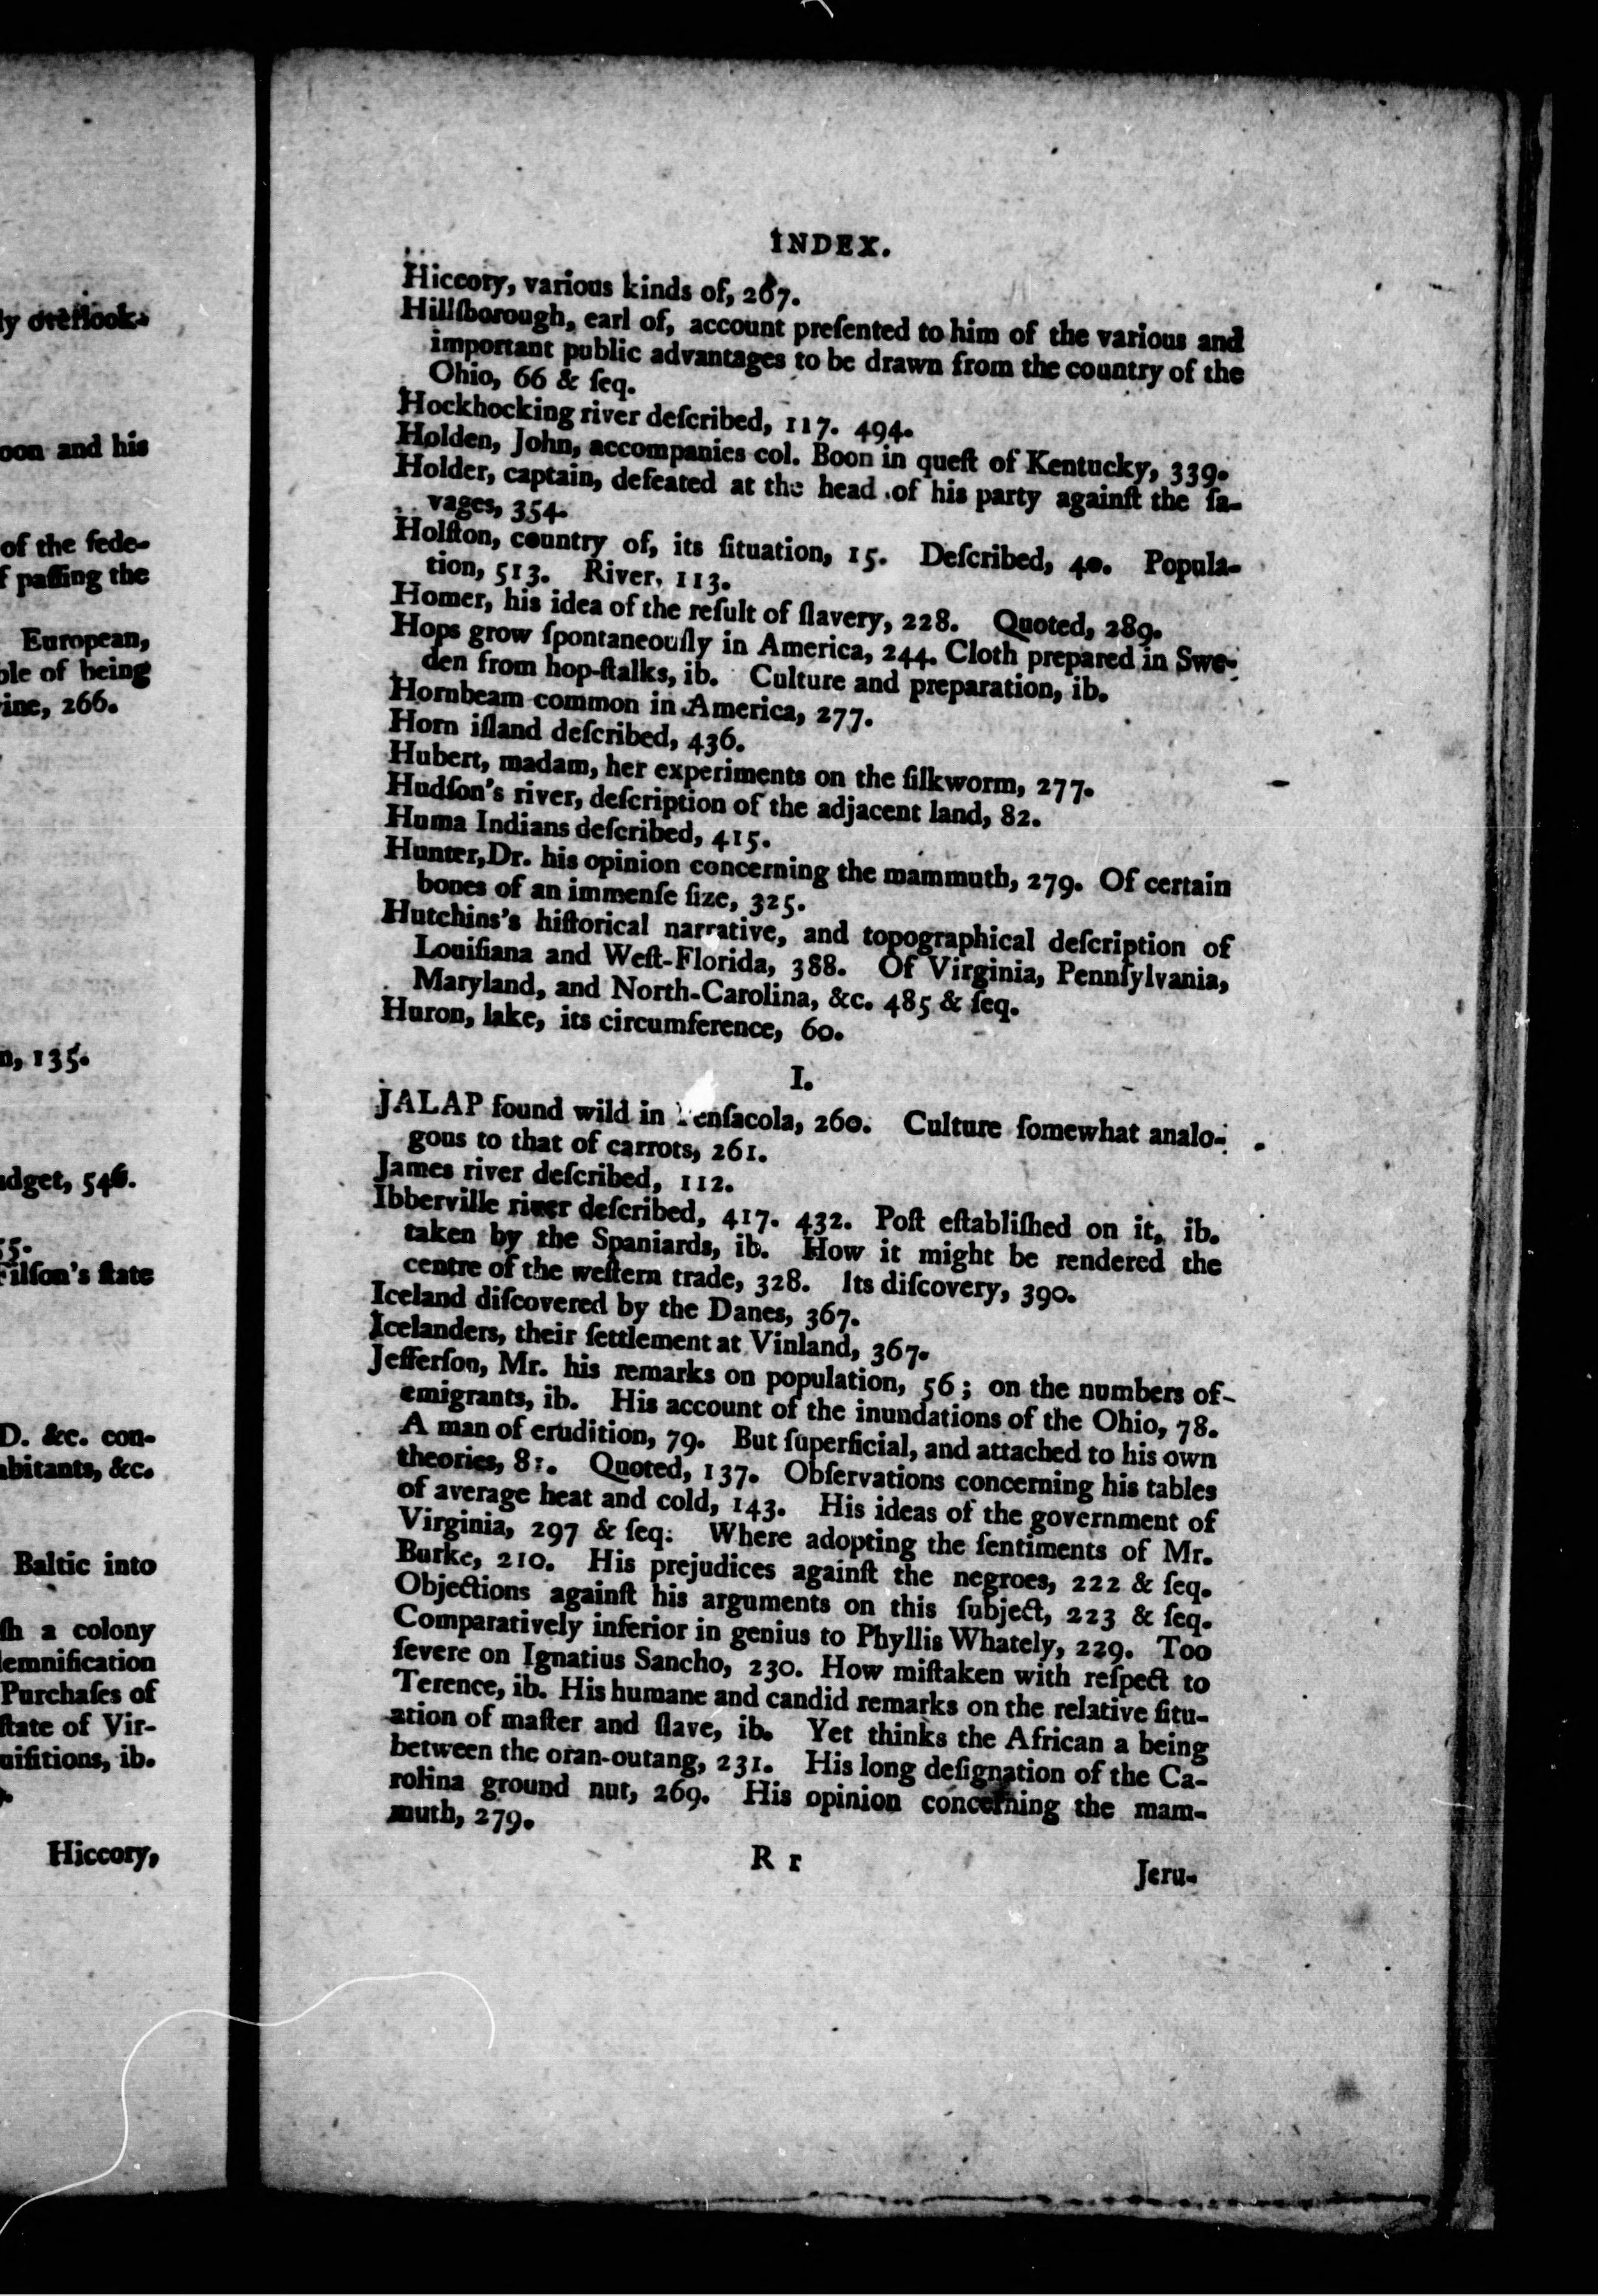 ly overlook-
oon and his
of the fede-
f paſſing the
European,
ble of being
ine, 266.
n, 135.
udget, 546.
55.
Filſon's ſtate
D. &c. con-
abitants, &c.
Baltic into
ſh a colony
demnification
Purchaſes of
ſtate of Vir-
uiſitions, ib.
Hiccory,
INDEX.
Hiccory, various kinds of, 267.
Hillſborough, earl of, account preſented to him of the various and
important public advantages to be drawn from the country of the
Ohio, 66 & ſeq.
Hockhocking river deſcribed, 117. 494.
Holden, John, accompanies col. Boon in queſt of Kentucky, 339.
Holder, captain, defeated at the head of his party againſt the ſa-
vages, 354.
Holſton, country of, its ſituation, 15. Deſcribed, 40. Popula-
tion, 513. River, 113.
Homer, his idea of the reſult of ſlavery, 228. Quoted, 289.
Hops grow ſpontaneouſly in America, 244. Cloth prepared in Swe-
den from hop-ſtalks, ib. Culture and preparation, ib.
Hornbeam common in America, 277.
Horn iſland deſcribed, 436.
Hubert, madam, her experiments on the ſilkworm, 277.
Hudſon's river, deſcription of the adjacent land, 82.
Huma Indians deſcribed, 415.
Hunter, Dr. his opinion concerning the mammuth, 279. Of certain
bones of an immenſe ſize, 325.
Hutchins's hiſtorical narrative, and topographical deſcription of
Louiſiana and Weſt-Florida, 388. Of Virginia, Pennſylvania,
Maryland, and North-Carolina, &c. 485 & ſeq.
Huron, lake, its circumference, 60.
I.
JALAP found wild in Penſacola, 260. Culture ſomewhat analo-
gous to that of carrots, 261.
James river deſcribed, 112.
Ibberville river deſcribed, 417. 432. Poſt eſtabliſhed on it, ib.
taken by the Spaniards, ib. How it might be rendered the
centre of the weſtern trade, 328. Its diſcovery, 390.
Iceland diſcovered by the Danes, 367.
Icelanders, their ſettlement at Vinland, 367.
Jefferſon, Mr. his remarks on population, 56; on the numbers of
emigrants, ib. His account of the inundations of the Ohio, 78.
A man of erudition, 79. But ſuperficial, and attached to his own
theories, 81. Quoted, 137. Obſervations concerning his tables
of average heat and cold, 143. His ideas of the government of
Virginia, 297 & ſeq. Where adopting the ſentiments of Mr.
Burke, 210. His prejudices againſt the negroes, 222 & ſeq.
Objections againſt his arguments on this ſubject, 223 & ſeq.
Comparatively inferior in genius to Phyllis Whately, 229. Too
ſevere on Ignatius Sancho, 230. How miſtaken with reſpect to
Terence, ib. His humane and candid remarks on the relative ſitu-
ation of maſter and ſlave, ib. Yet thinks the African a being
between the oran-outang, 231. His long deſignation of the Ca-
rolina ground nut, 269. His opinion concerning the mam-
muth, 279.
R r
Jeru-